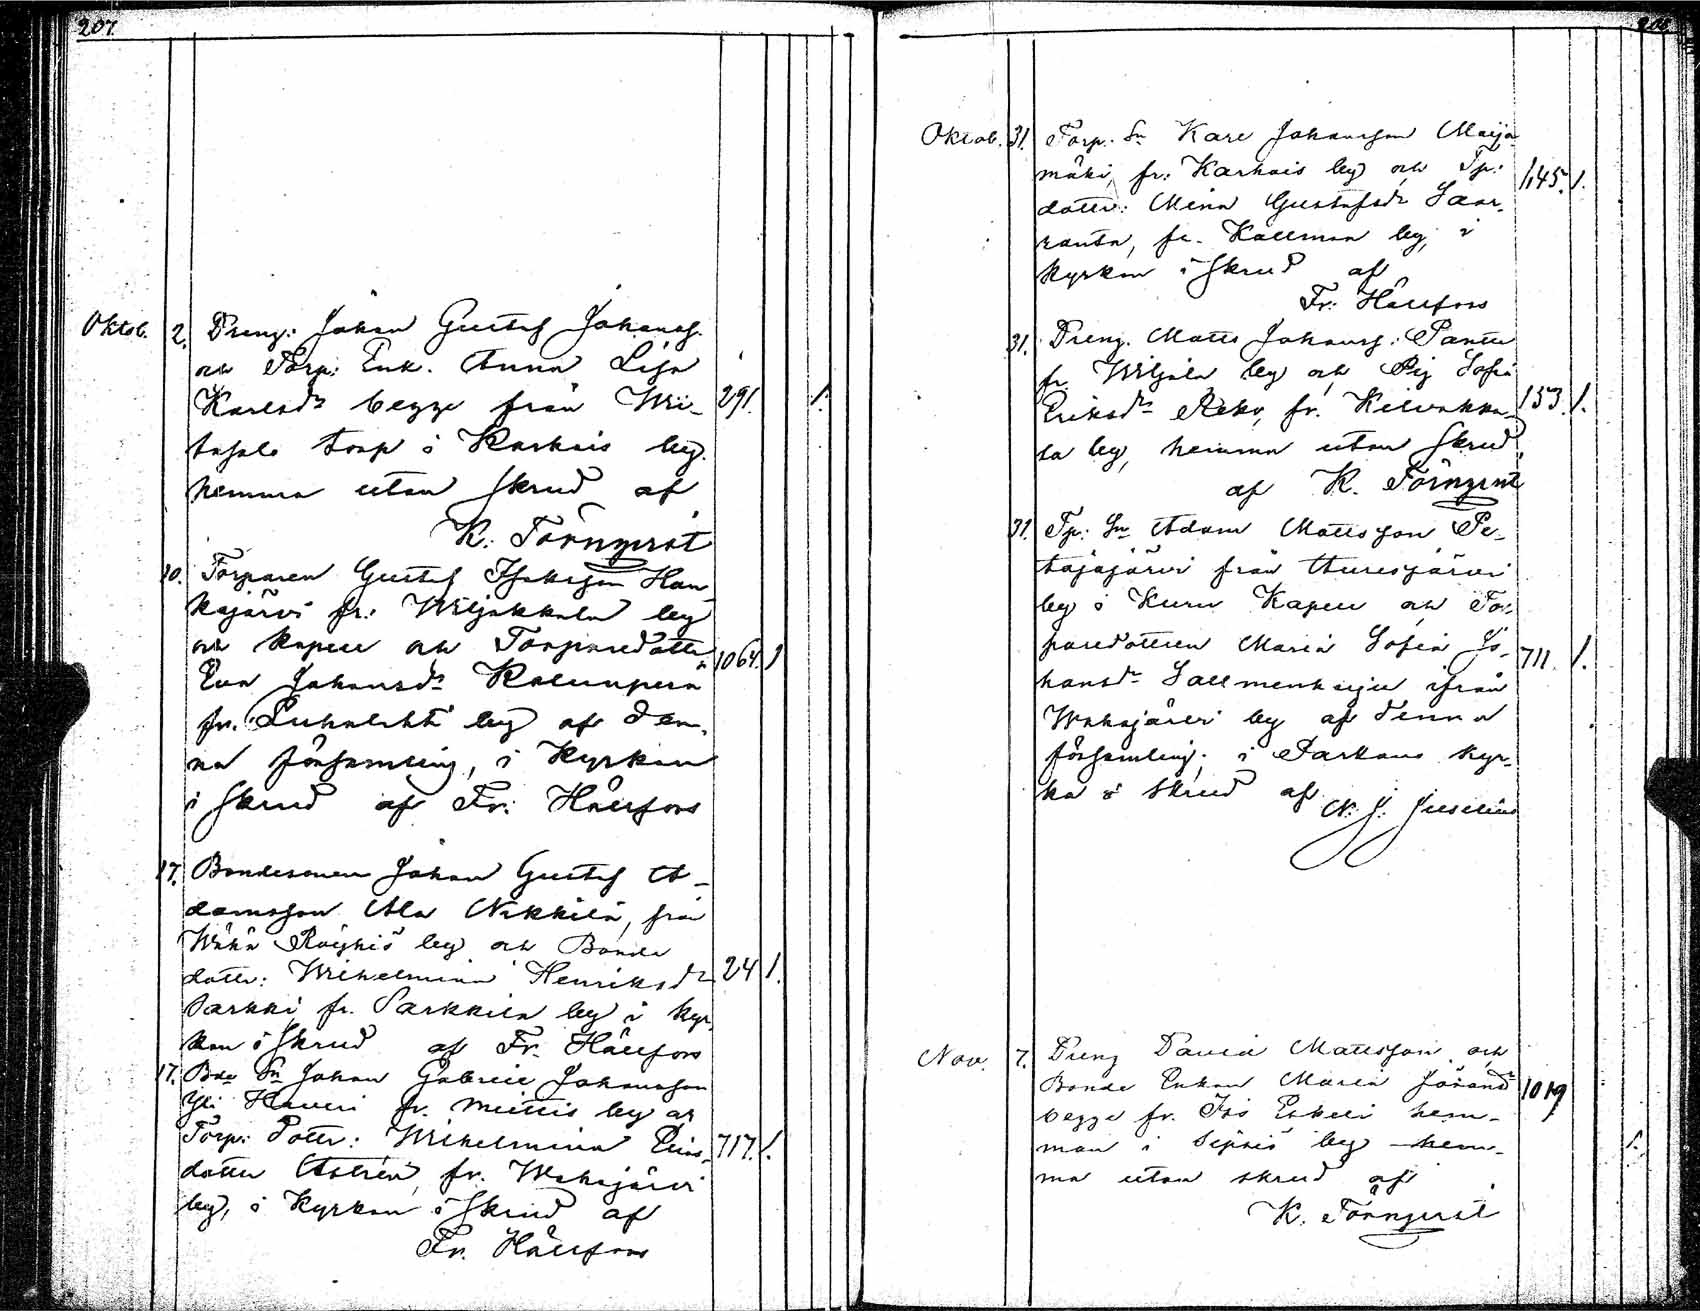 207.
Oktob. 2. Dreng: Johan Gustaf Johansf.
och Torp: Enk. Anna Lisa
Karlsdr begge från Wii- 291. 1.
tasalo torp i Karhois by.
hemma utan skrud af
K. Törnqvist
10. Torparen Gustaf Isaksson Han
kajärvi fr: Wiljakkala by
och kapell och Torparedotter
Eva Johansdr 1064. 1
fr. by af den-
na församling, i Kyrkan
i skrud af Fr: Hällfors
17. Bondesonen Johan Gustaf A-
damsson Ala Nikkilä, från
Wähä Röyhiö by och Bonde
dottr: Wilhelmina Henriksdr 24 1.
Sarkki fr. Sarkkila by i kyr
kan i skrud af Fr. Hällfors
17. Bde Sn Johan Gabriel Johansson
Yli Haveri fr. Miettis by
Torp: Dottr: Wilhelmina Elias- 717. 1.
dotter fr. Wahojärvi
by, i Kyrkan i skrud af
Fr. Hällfors
Oktob. 31. Torp. Sn Karl Johansson Maija
mäki, fr: Karhois by och Tp: 1,145. 1.
dottr: Mina Gustafsdr Saar-
ranta, fr. Kallmaa by, i
kyrkan i skrud af
Fr: Hällfors
31. Dreng. Matts Johansf: Panttu
fr. Wiljala by och Pig Sofia
Eriksdr fr. Kilvakka- 153. 1.
la by, hemma utan skrud,
af K. Törnqvist
31. Tp: Sn Adam Mattsson Pe-
täjäjärvi från Aurejärvi
by i Kuru Kapell och Tor-
paredottren Maria Sofia Jo- 711. 1.
hansdr Sallmenharju från
Wahojärvi by af denna
församling; i Parkano kyr-
ka i skrud af N. J. Juselius
Nov. 7. Dreng David Mattsson och
Bonde Enkan Maria Johansdr 1019
begge fr. Iso Eskeli hem-
man i Sipsiö by hem- 1.
ma utan skrud af
K. Törnqvist